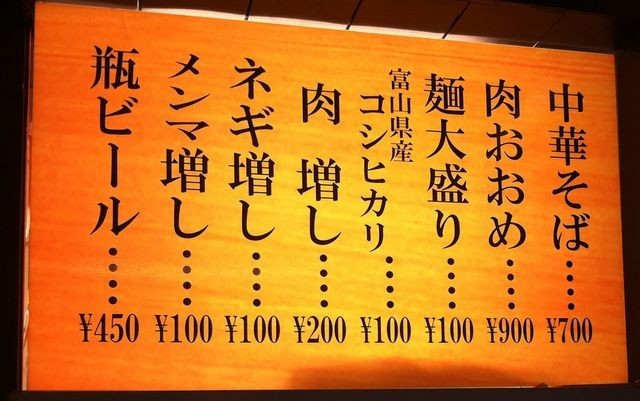 中華そば……¥700
肉おおめ……¥900
麺大盛り……¥100
富山県産
コシヒカリ……¥100
肉 増し……¥200
ネギ増し……¥100
メンマ増し……¥100
瓶ビール……¥450